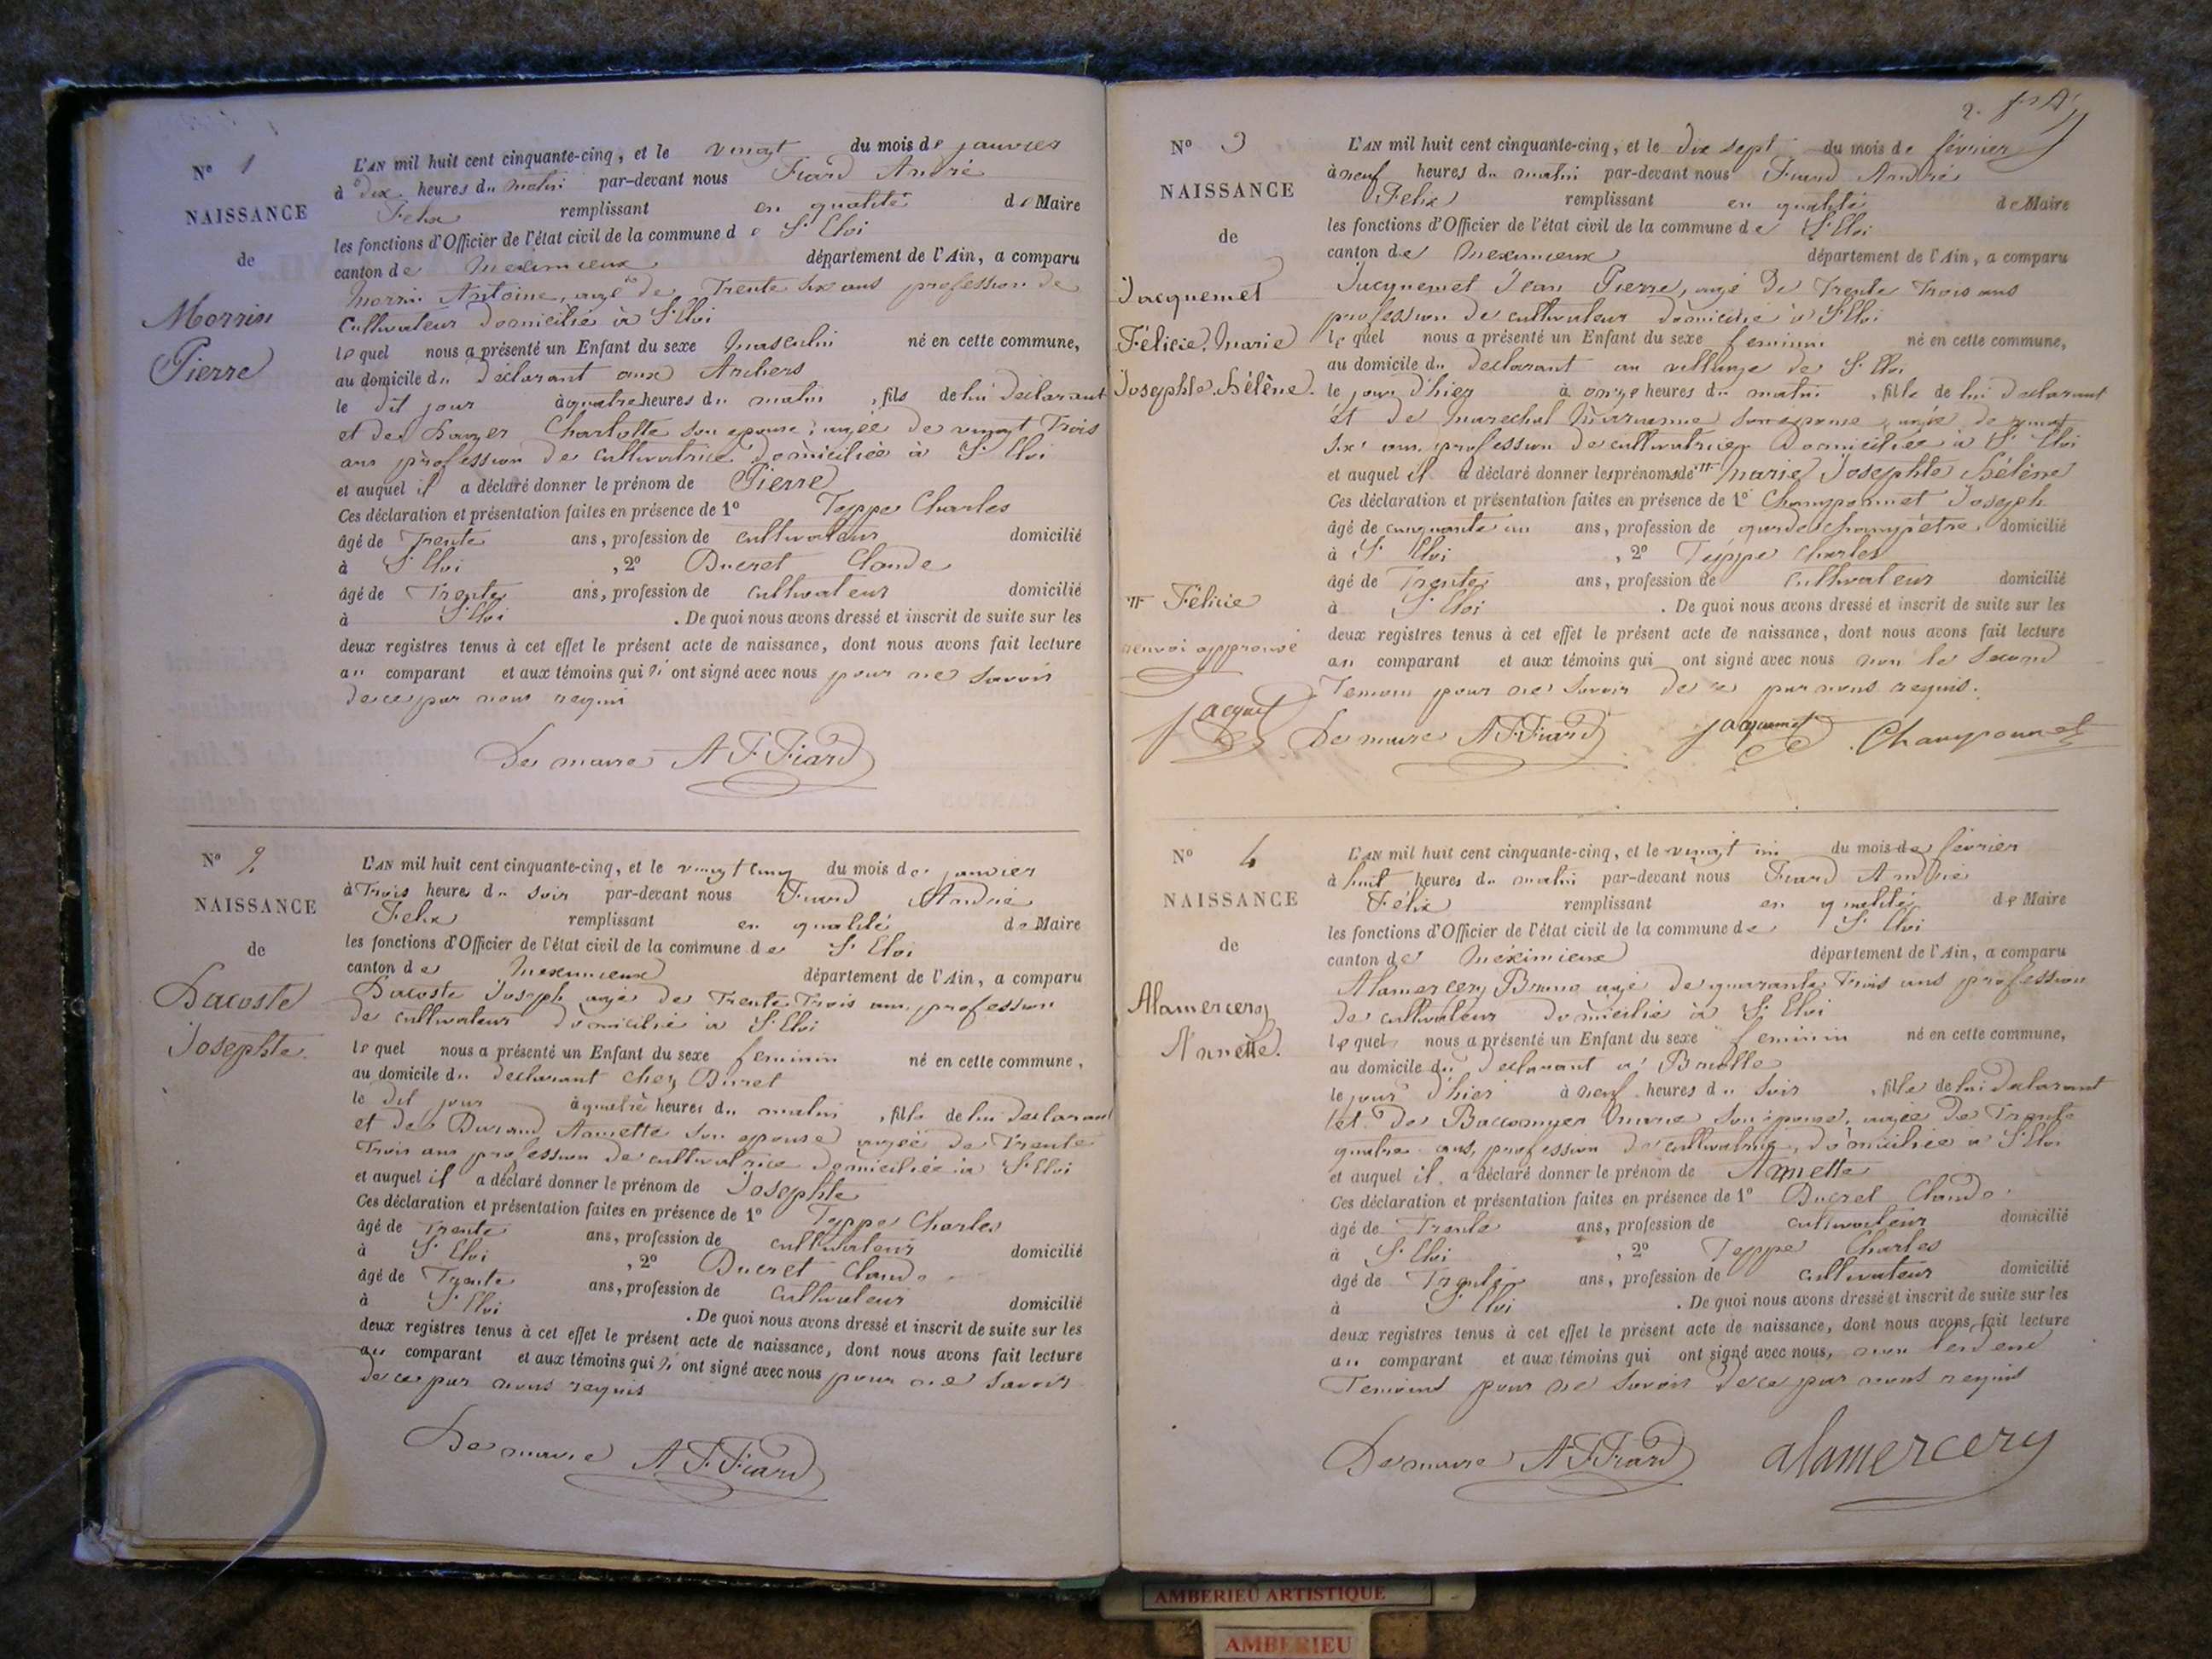 Nº 1
NAISSANCE
de
Morrin
Pierre
L'AN mil huit cent cinquante-cinq, et le vingt du mois de janvier
à dix heures du matin par-devant nous Fiard André
Felix remplissant en qualité de Maire
les fonctions d'Officier de l'état civil de la commune de St Eloi
canton de Meximieux département de l'Ain, a comparu
Morrin Antoine, agé de Trente six ans profession de
Cultivateur domicilié à St Eloi
lequel nous a présenté un Enfant du sexe masculin né en cette commune,
au domicile du déclarant aux Archers
le dit jour à quatre heures du matin, fils de lui déclarant
et de Charlotte son epouse, agée de vingt Trois
ans profession de cultivatrice domiciliée à St Eloi
et auquel il a déclaré donner le prénom de Pierre
Ces déclaration et présentation faites en présence de 1º Teppe Charles
âgé de Trente ans, profession de cultivateur domicilié
à St Eloi, 2º Ducret Claude
âgé de Trente ans, profession de cultivateur domicilié
à St Eloi. De quoi nous avons dressé et inscrit de suite sur les
deux registres tenus à cet effet le présent acte de naissance, dont nous avons fait lecture
au comparant et aux témoins qui n'ont signé avec nous pour ne savoir
de ce par nous requis
Le maire A F Fiard
Nº 2
NAISSANCE
de
Lacoste
Josephte.
L'AN mil huit cent cinquante-cinq, et le vingt cinq du mois de janvier
à Trois heures du soir par-devant nous Fiard André
Felix remplissant en qualité de Maire
les fonctions d'Officier de l'état civil de la commune de St Eloi
canton de Meximieux département de l'Ain, a comparu
Lacoste Joseph agé de Trente Trois ans, profession
de cultivateur domicilié à St Eloi
lequel nous a présenté un Enfant du sexe feminin né en cette commune,
au domicile du declarant chez Duret
le dit jour à quatre heures du matin, fille de lui declarant
et de Durand Annette son epouse agée de Trente
Trois ans profession de cultivatrice domiciliée à St Eloi
et auquel il a déclaré donner le prénom de Josephte
Ces déclaration et présentation faites en présence de 1º Teppe Charles
âgé de Trente ans, profession de cultivateur domicilié
à St Eloi, 2º Ducret Claude
âgé de Trente ans, profession de cultivateur domicilié
à St Eloi. De quoi nous avons dressé et inscrit de suite sur les
deux registres tenus à cet effet le présent acte de naissance, dont nous avons fait lecture
au comparant et aux témoins qui n'ont signé avec nous pour ne savoir
de ce par nous requis
Le maire A F Fiard
2.
Nº 3
NAISSANCE
de
Jacquemet
Félicie. Marie
Josephte. Hélène.
Félicie
renvoi approuvé
L'AN mil huit cent cinquante-cinq, et le dix sept du mois de février
à neuf heures du matin par-devant nous Fiard André
Felix remplissant en qualité de Maire
les fonctions d'Officier de l'état civil de la commune de St Eloi
canton de Meximieux département de l'Ain, a comparu
Jacquemet Jean Pierre, agé de Trente Trois ans
profession de cultivateur domicilié à St Eloi
lequel nous a présenté un Enfant du sexe feminin né en cette commune,
au domicile du declarant au village de St Eloi
le jour d'hier à onze heures du matin, fille de lui declarant
et de marechal Marianne son epouse agée de vingt
six ans, profession de cultivatrice domiciliée à St Eloi
et auquel il a déclaré donner les prénoms de Marie Josephte Hélène
Ces déclaration et présentation faites en présence de 1º Champonnet Joseph
âgé de cinquante un ans, profession de garde champêtre domicilié
à St Eloi, 2º Teppe Charles
âgé de Trente ans, profession de cultivateur domicilié
à St Eloi. De quoi nous avons dressé et inscrit de suite sur les
deux registres tenus à cet effet le présent acte de naissance, dont nous avons fait lecture
au comparant et aux témoins qui ont signé avec nous non le second
Temoin pour ne savoir de ce par nous requis.
Le maire A F Fiard jaquemet Champonnet
Nº 4
NAISSANCE
de
Alamercery
Annette.
L'AN mil huit cent cinquante-cinq, et le vingt un du mois de février
à huit heures du matin par-devant nous Fiard André
Félix remplissant en qualité de Maire
les fonctions d'Officier de l'état civil de la commune de St Eloi
canton de Méximieux département de l'Ain, a comparu
Alamercery Bruno agé de quarante Trois ans profession
de cultivateur domicilié à St Eloi
lequel nous a présenté un Enfant du sexe feminin né en cette commune,
au domicile du declarant à
le jour d'hier à neuf heures du soir, fille de lui declarant
et de Marie son epouse, agée de Trente
quatre ans, profession de cultivatrice, domiciliée à St Eloi
et auquel il a déclaré donner le prénom de Annette
Ces déclaration et présentation faites en présence de 1º Ducret Claude
âgé de Trente ans, profession de cultivateur domicilié
à St Eloi, 2º Teppe Charles
âgé de Trente ans, profession de cultivateur domicilié
à St Eloi. De quoi nous avons dressé et inscrit de suite sur les
deux registres tenus à cet effet le présent acte de naissance, dont nous avons fait lecture
au comparant et aux témoins qui ont signé avec nous, non
Temoins pour ne savoir de ce par nous requis
Le maire A F Fiard alamercery
AMBERIEU ARTISTIQUE
AMBERIEU